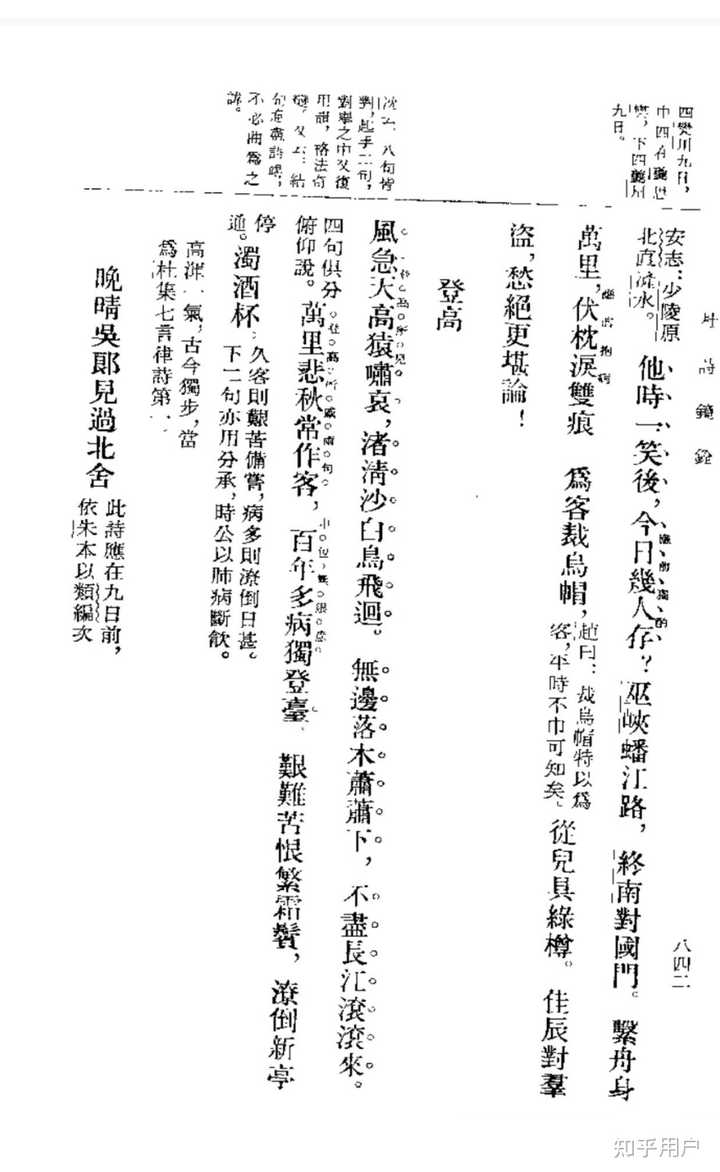 杜詩鏡銓
八四二
四樊川九日，
九日。
沈云：八句皆
對，起手二句，
對舉之中又復
用韻，格法奇
句
不必曲爲之
諱。
安志：少陵原
北直滻水。
他時一笑後，今日幾人存？巫峽蟠江路，終南對國門。繫舟身
萬里，伏枕淚雙痕　爲客裁烏帽，趙曰：裁烏帽特以爲
客，平時不巾可知矣。從兒具綠樽。佳辰對羣
盜，愁絕更堪論！
登高
風急天高猿嘯哀，渚清沙白鳥飛迴。無邊落木蕭蕭下，不盡長江滾滾來。
四句俱分
俯仰說。萬里悲秋常作客，百年多病獨登臺。艱難苦恨繁霜鬢，潦倒新亭
停
通。濁酒杯。久客則艱苦備嘗，病多則潦倒日甚。
下二句亦用分承，時公以肺病斷飲。
高渾一氣，古今獨步，當
爲杜集七言律詩第一
晚晴吳郎見過北舍
此詩應在九日前，
依朱本以類編次
知乎用户